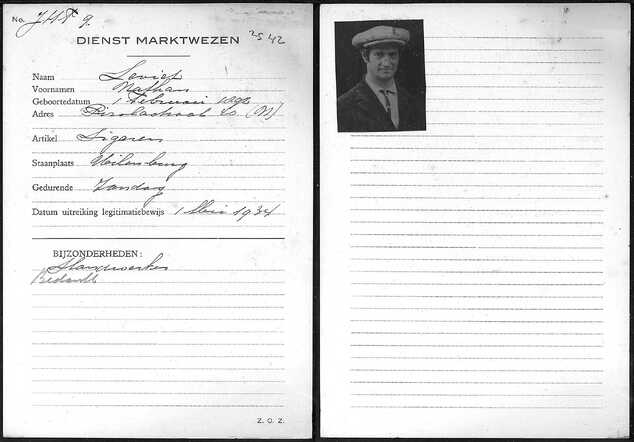 No. 9.
DIENST MARKTWEZEN 2542
Naam
Voornamen Nathan
Geboortedatum 1 Februari
Adres
Artikel Sigaren
Staanplaats Uilenburg
Gedurende Zondag
Datum uitreiking legitimatiebewijs 1 Mei 1934
BIJZONDERHEDEN:
Standwerker
Bedankt
Z. O. Z.